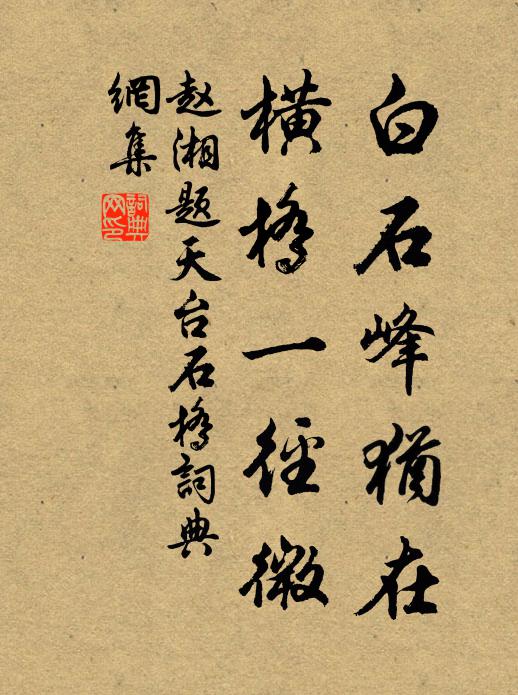 白石峰猶在
橫橋一徑微
赵湘题天台石橋詞典
網集
詞典
网印